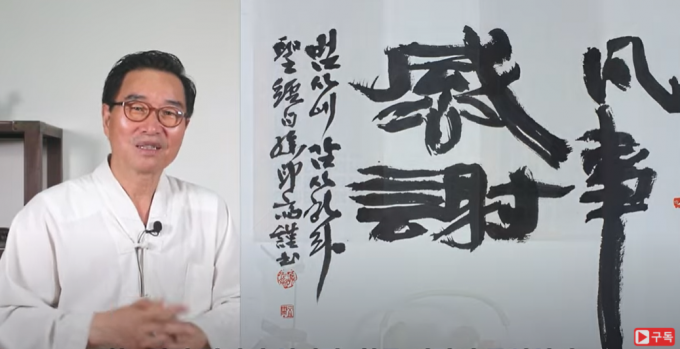 凡事
感謝
범사에 감사하라
聖經句 謹書
구독